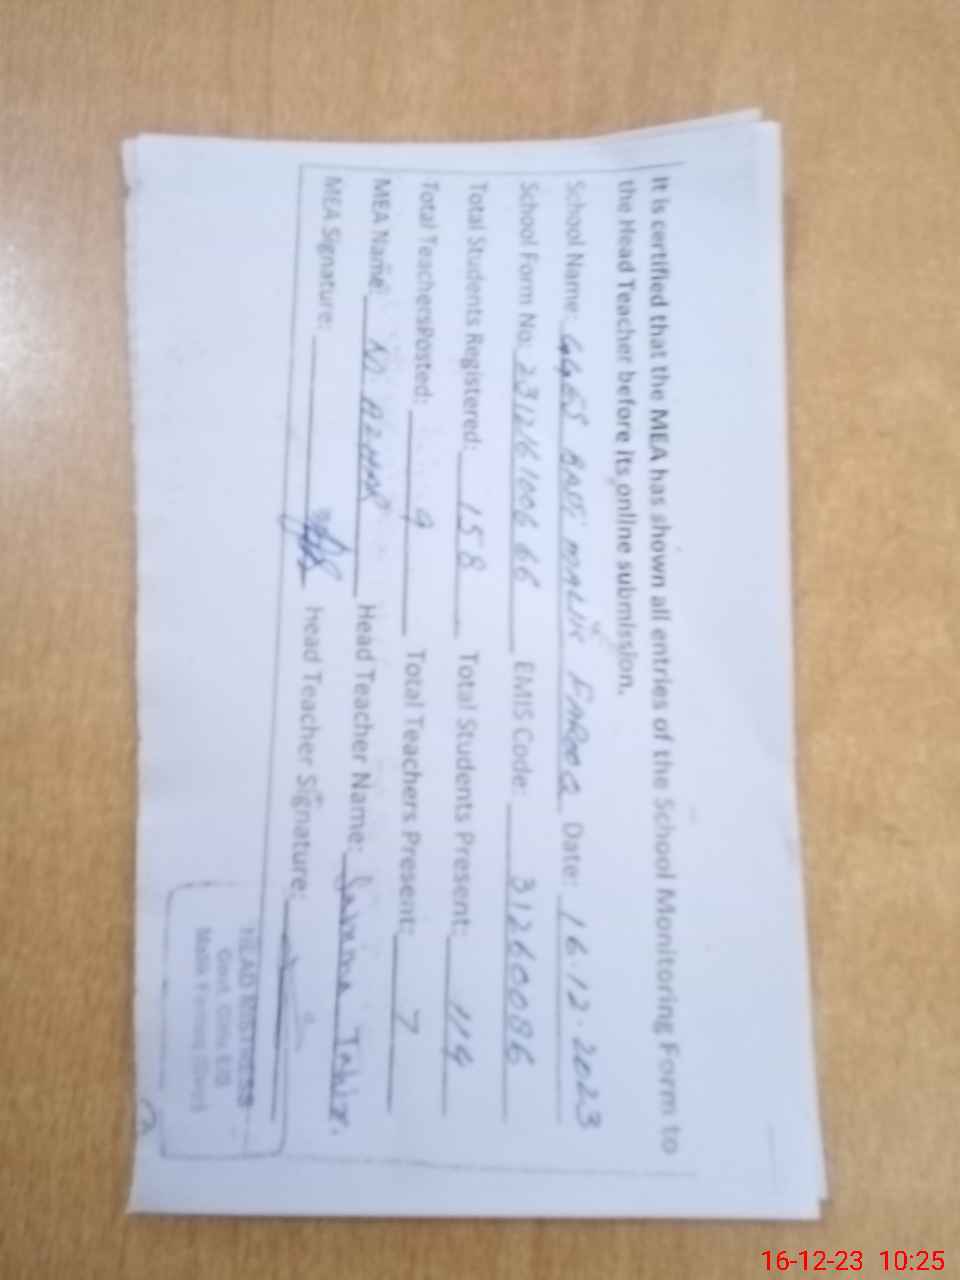 It is certified that the MEA has shown all entries of the School Monitoring Form to
the Head Teacher before its online submission.
School Name: GGES BASTI MALIK FAROOQ Date: 16.12.2023
School Form No: 231216100666 EMIS Code: 31260086
Total Students Registered: 158 Total Students Present: 119
Total TeachersPosted: 9 Total Teachers Present: 7
MEA Name M. AZHAR Head Teacher Name: Tahir.
MEA Signature: head Teacher Signature:
HEAD MISTRESS
Govt. Girls E/S
Malik Farooq
16-12-23 10:25